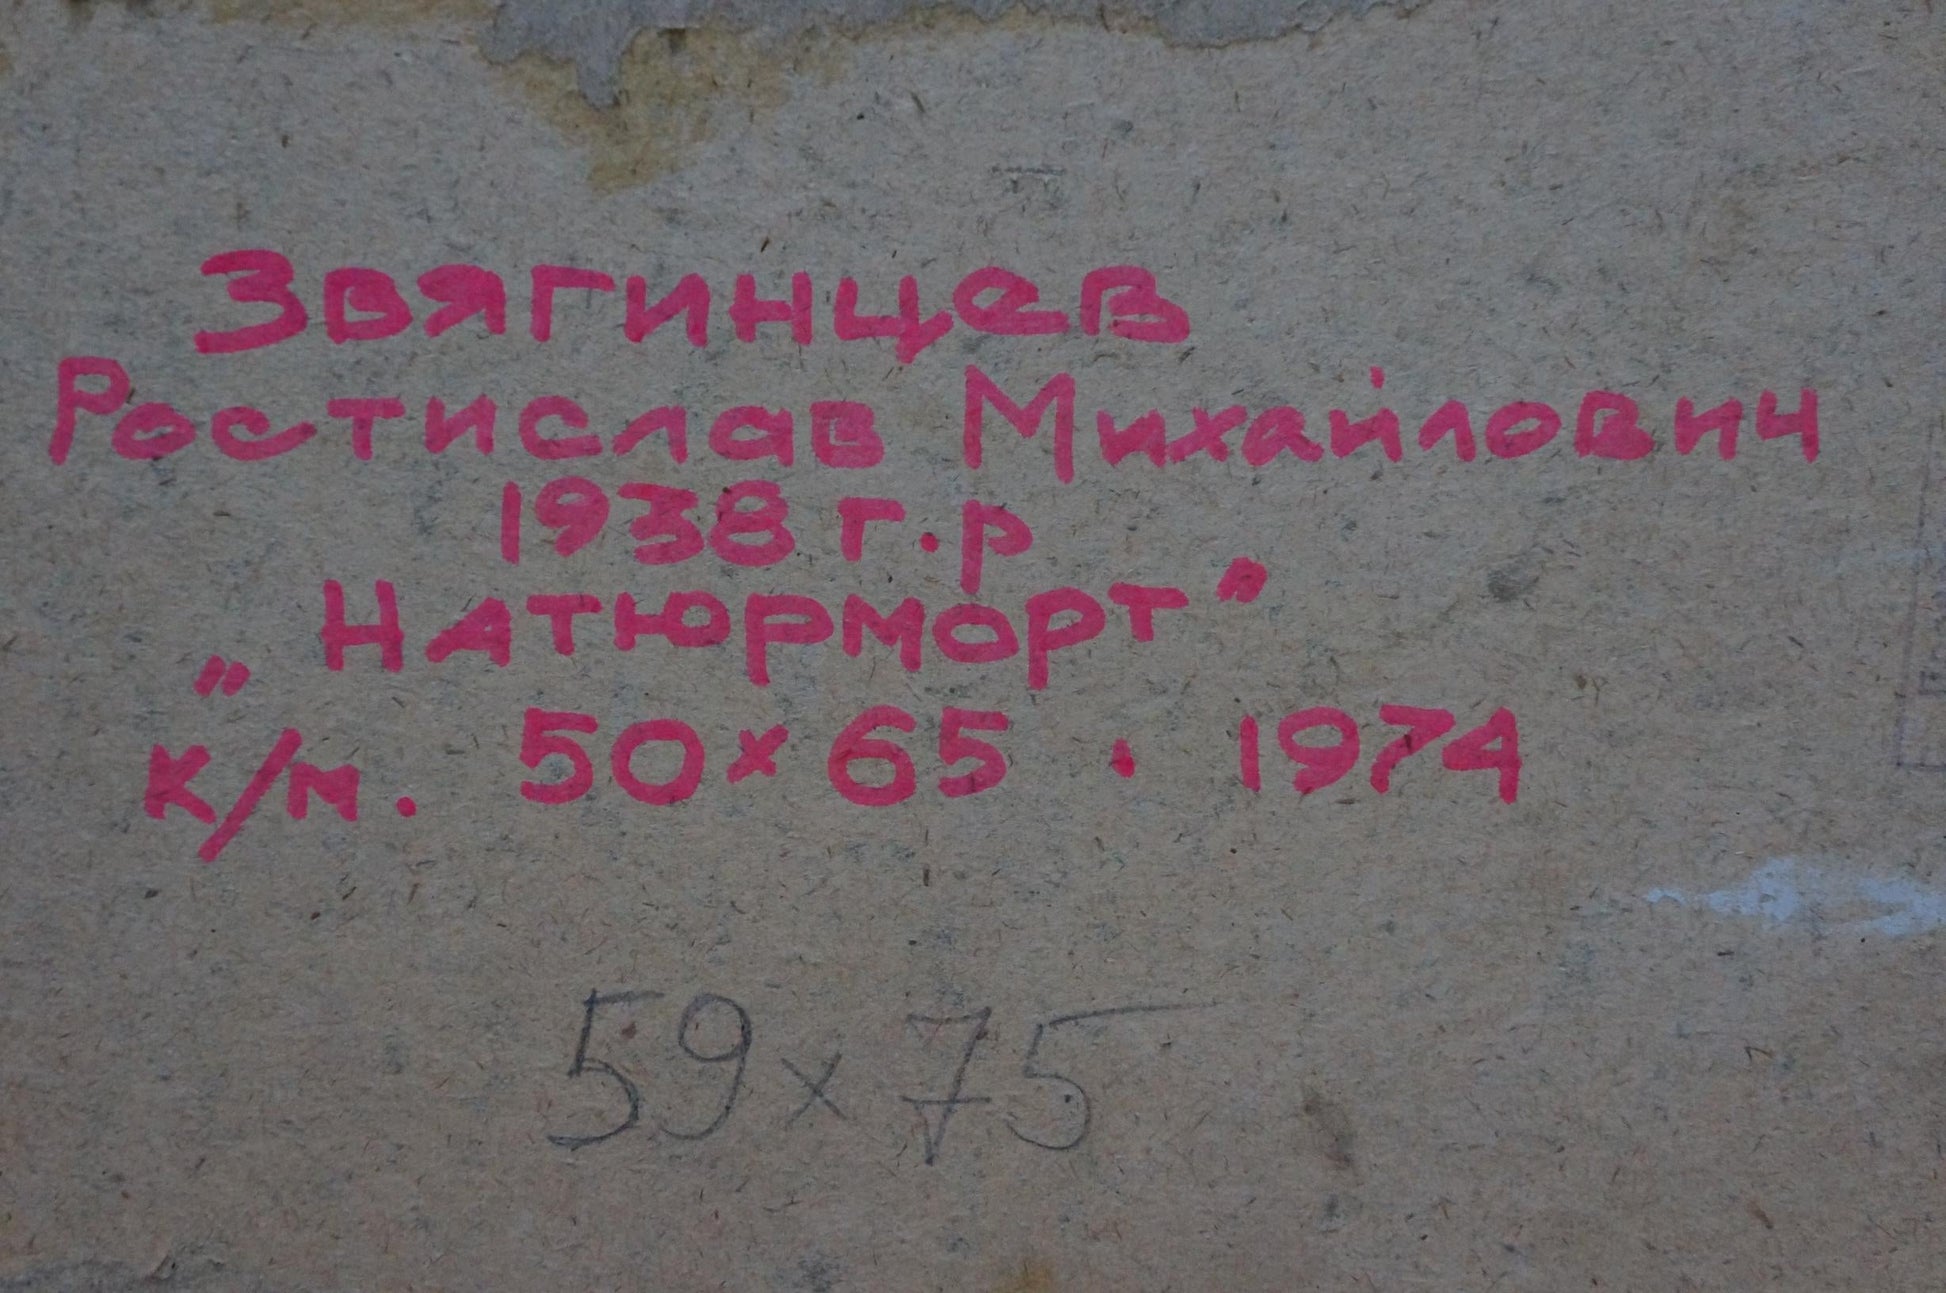 Звягинцев
Ростислав Михайлович
1938 г.р
„Натюрморт"
к/м. 50×65 . 1974
59×75